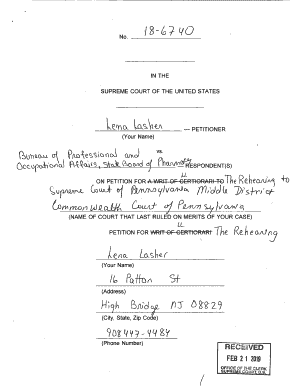 No. 18-6740
IN THE
SUPREME COURT OF THE UNITED STATES
Lena Lasher — PETITIONER
(Your Name)
vs.
Bureau of Professional and
Occupational Affairs, State Board of Pharmacy RESPONDENT(S)
ON PETITION FOR A WRIT OF CERTIORARI TO The Rehearing to
Supreme Court of Pennsylvania Middle District
Commonwealth Court of Pennsylvania
(NAME OF COURT THAT LAST RULED ON MERITS OF YOUR CASE)
PETITION FOR WRIT OF CERTIORARI The Rehearing
Lena Lasher
(Your Name)
16 Patton St
(Address)
High Bridge NJ 08829
(City, State, Zip Code)
908 447-4484
(Phone Number)
RECEIVED
FEB 21 2019
OFFICE OF THE CLERK
SUPREME COURT, U.S.